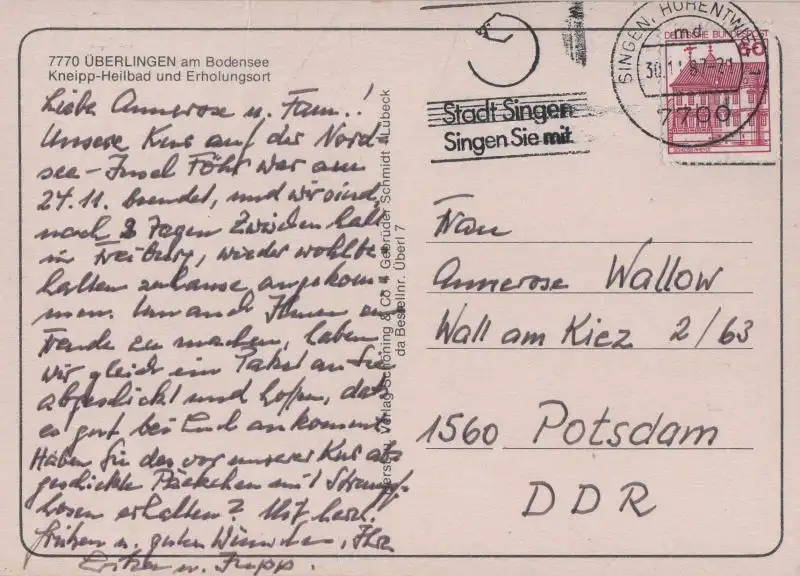 7770 ÜBERLINGEN am Bodensee
Kneipp-Heilbad und Erholungsort
Liebe Annerose u. Fam.!
Unsere Kur auf der Nord-
see-Insel Föhr war am
24.11. beendet, und wir sind,
nach 3 Tagen Zwischenhalt
in Freiburg, wieder wohlbe-
halten zuhause angekom-
men. Um auch Ihnen eine
Freude zu machen, haben
wir gleich ein Paket an Sie
abgeschickt und hoffen, daß
es gut bei Euch ankommt.
Haben Sie das vor unserer Kur ab-
geschickte Päckchen mit Strumpf-
hosen erhalten? Mit herzl.
Grüßen u. guten Wünschen, Ihre
u.
Verlag Schöning & Co + Gebrüder Schmidt · Lübeck
da Bestellnr. Überl 7
Stadt Singen
Singen Sie mit
SINGEN, HOHENTWIEL
md
30.11.87
7700
DEUTSCHE BUNDESPOST
60
Frau
Annerose Wallow
Wall am Kiez 2/63
1560 Potsdam
DDR